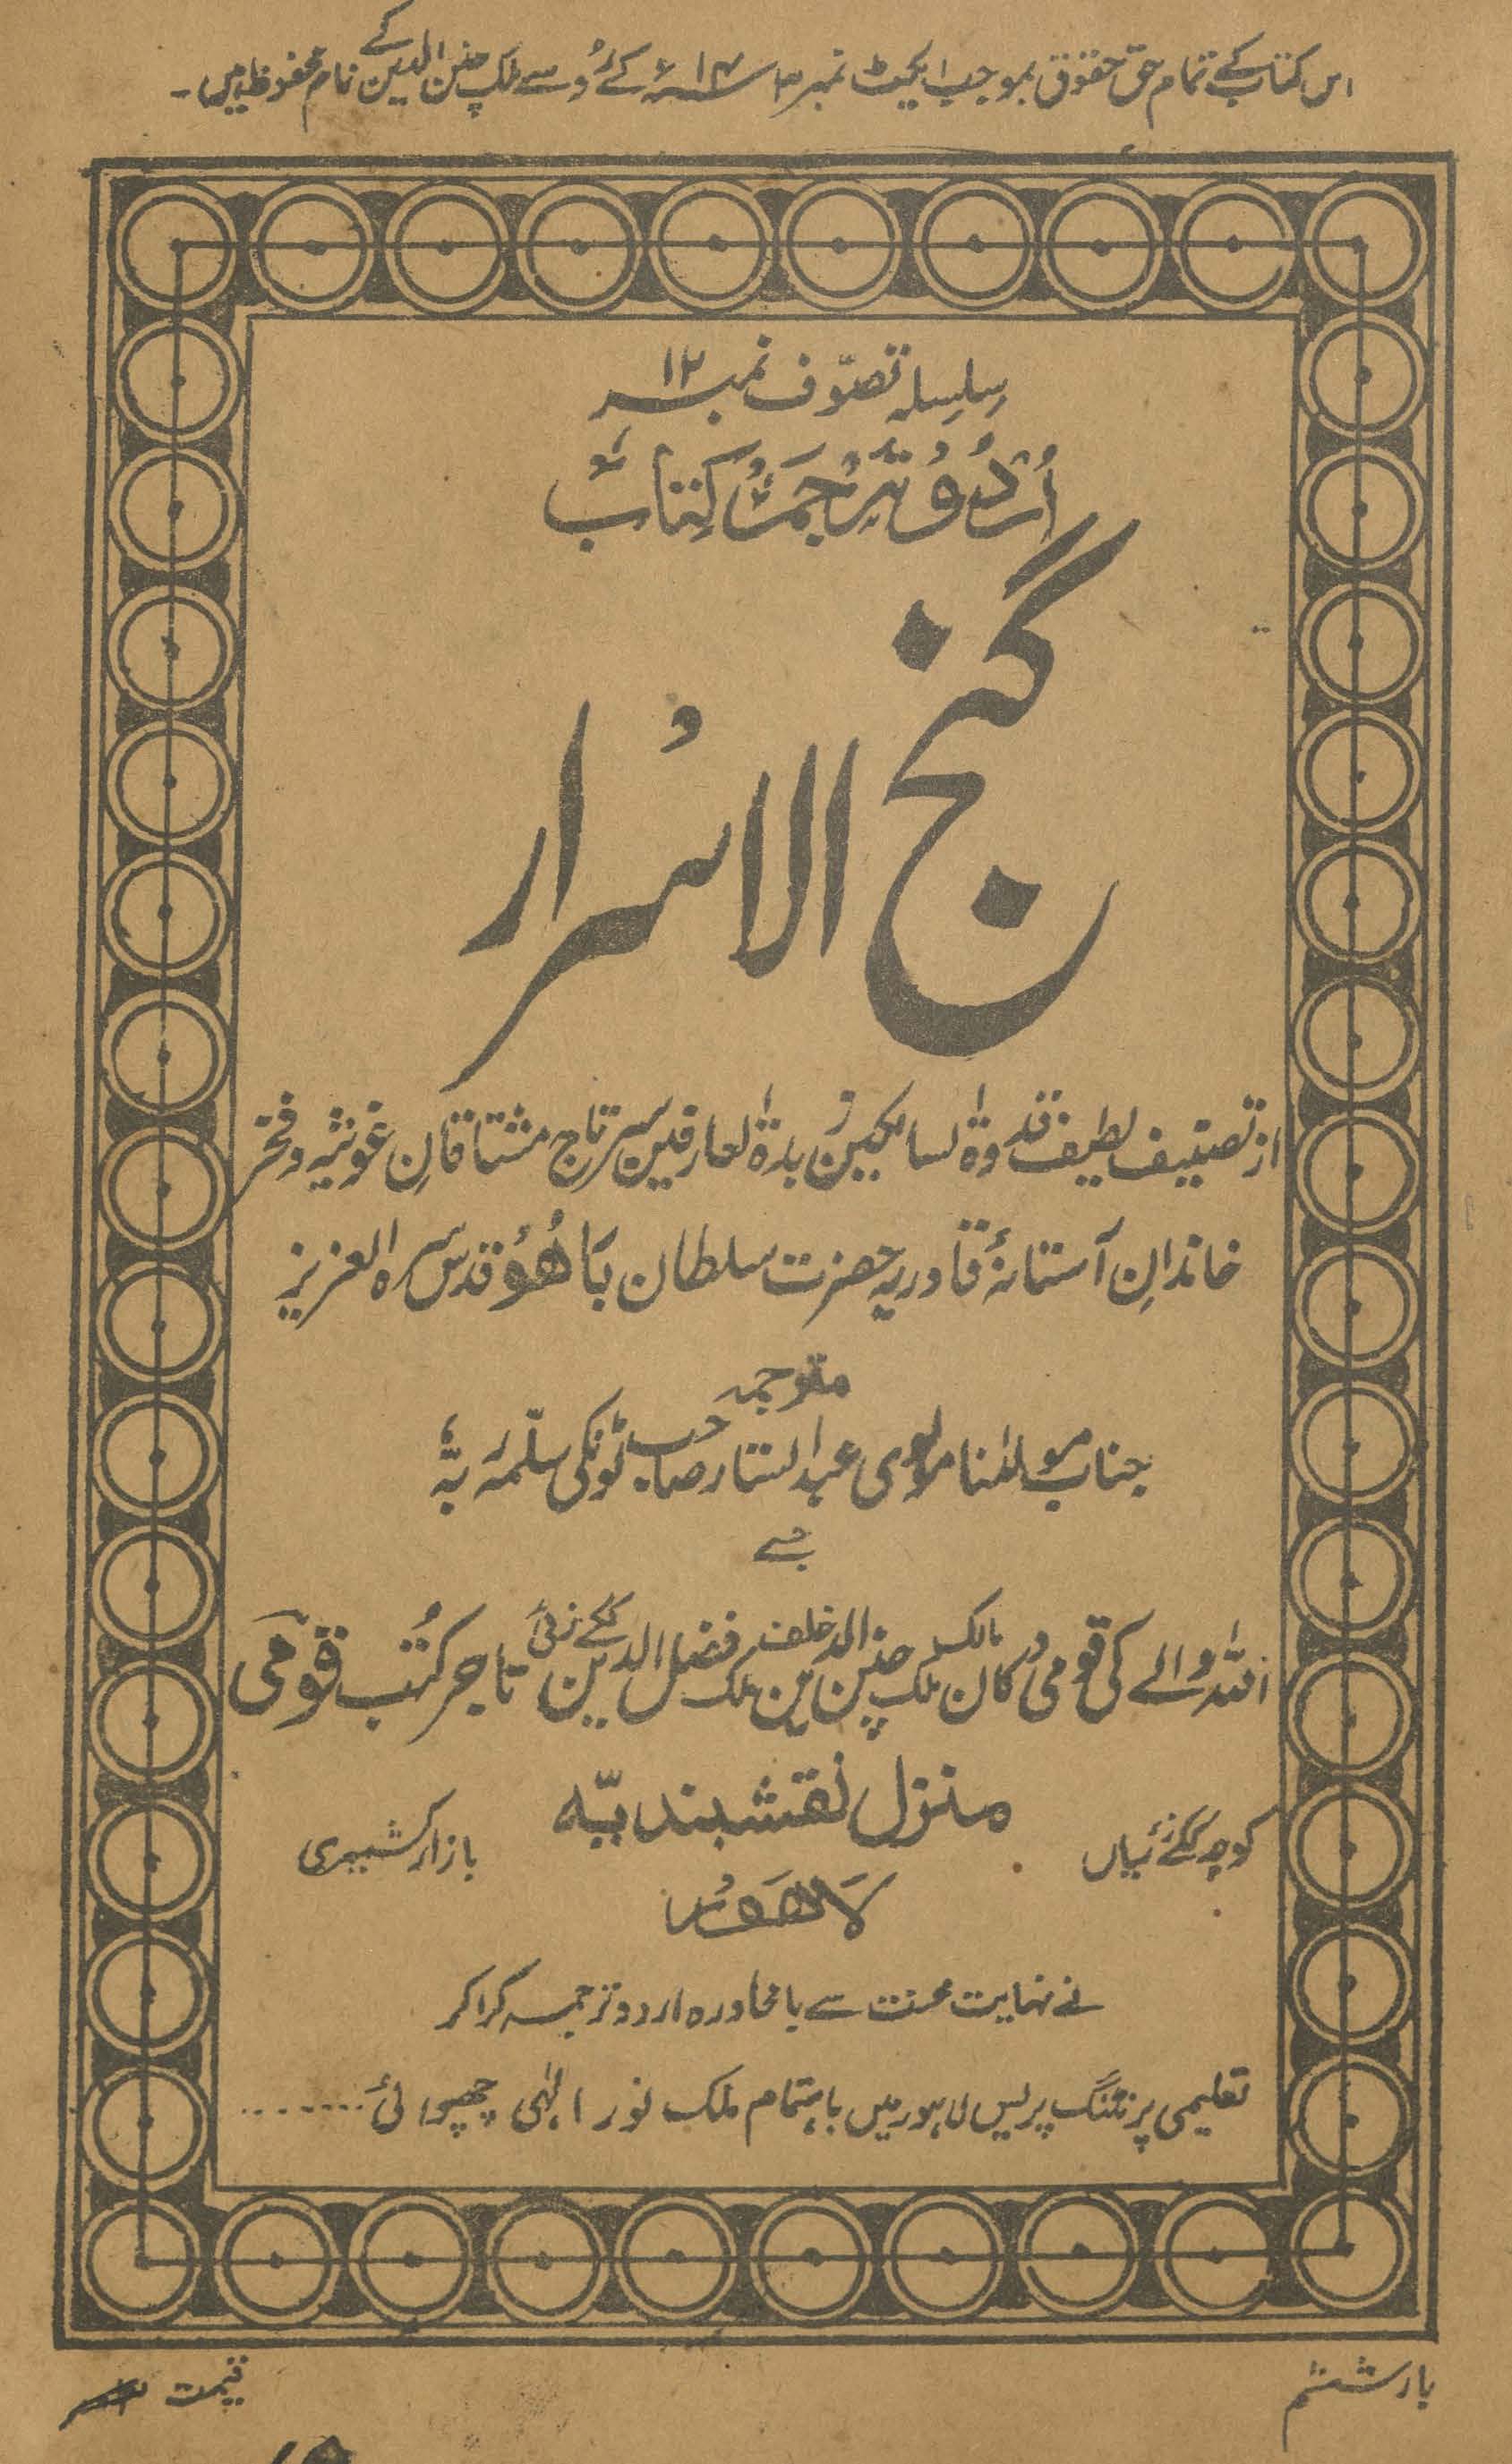 اس کتاب کے تمام حق حقوق بموجب ایکٹ نمبر ۳ ۱۹۱۴ء کے رُو سے ملک چنن الدین کے نام محفوظ ہیں۔
سِلسِلہ تصوّف نمبر ۱۲
اُردُو تَرجَمَہُ کِتَاب
گنج الاسُرار
از تصنیف لطیف قدوۃ السالکین زبدۃ العارفین سرتاج مشتاقانِ غوثیہ و فخر
خاندانِ آستانۂ قادریہ حضرت سلطان بَاھُو قدس سرہ العزیز
مترجمہ
جناب مولٰنا مولوی عبدالستار صاحب ٹونکی سلّمہ ربّہٗ
جسے
اللہ والے کی قومی دوکان مالک ملک چنن الدین خلف ملک فضل الدین ککے زئی تاجر کُتب قومی
منزل نقشبندیّہ
کوچہ ککے زئیاں
بازار کشمیری
لَاھَوْر
نے نہایت محنت سے بامحاورہ اردو ترجمہ کرا کر
تعلیمی پرنٹنگ پریس لاہور میں باہتمام ملک نور الٰہی چھپوائی........
بار ششم
قیمت